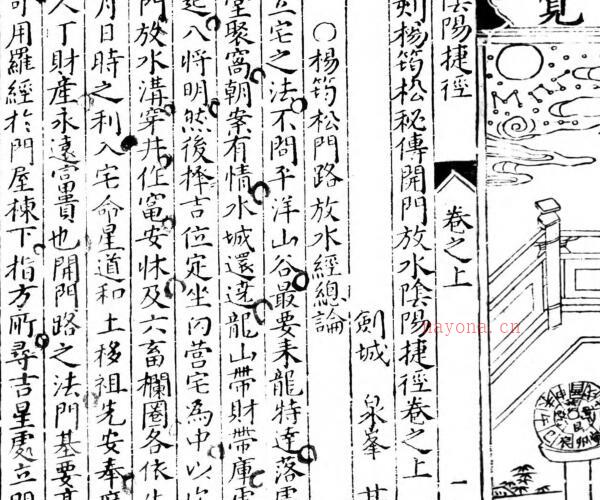 覚
陰陽捷徑
卷之上
一
刻楊筠松秘傳開門放水陰陽捷徑卷之上
劍城 泉峯
○楊筠松門路放水經總論
立宅之法不問平洋山谷最要来龍特達落
堂聚窩朝案有情水城還遶龍山帶財帶庫
起八將明然後擇吉位定坐向营宅為中以
門放水溝穿井作竈安床及六畜欄圈各依
月日時之利入宅命星道和土移祖先安奉
人丁財產永遠富貴也開門路之法門基要
可用羅經於門屋棟下指方所尋吉星處立
nayona.cn